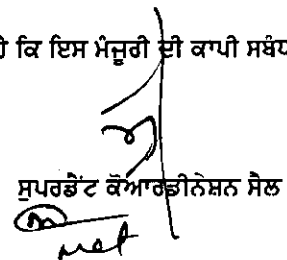 ਹੈ ਕਿ ਇਸ ਮੰਜੂਰੀ ਦੀ ਕਾਪੀ ਸਬੰਧ
ਸੁਪਰਡੈਂਟ ਕੋਆਰਡੀਨੇਸ਼ਨ ਸੈਲ